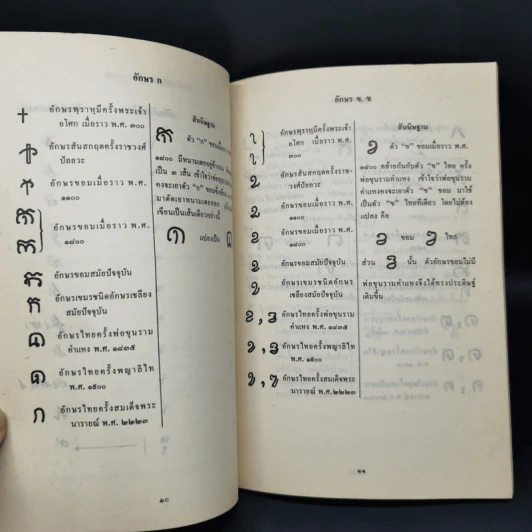 อักษร ก
อักษรพฺราหฺมีครั้งพระเจ้า
อโศก เมื่อราว พ.ศ. ๓๐๐
อักษรสันสกฤตครั้งราชวงศ์
ปัลลวะ
อักษรขอมเมื่อราว พ.ศ.
๑๑๐๐
อักษรขอมเมื่อราว พ.ศ.
๑๘๐๐
อักษรขอมสมัยปัจจุบัน
อักษรเขมรชนิดอักษรเชลียง
สมัยปัจจุบัน
อักษรไทยครั้งพ่อขุนราม
คำแหง พ.ศ. ๑๘๓๕
อักษรไทยครั้งพญาลิไท
พ.ศ. ๑๙๐๐
อักษรไทยครั้งสมเด็จพระ
นารายณ์ พ.ศ. ๒๒๒๓
สันนิษฐาน
ตัว "ก" ขอมเมื่อราว
๑๘๐๐ มีหนามเตย
เป็น ๓ เส้น เข้าใจว่าพ่อขุนราม
คงจะเอาตัว "ก" ขอม
มาตัดเอาหนามเตยออก
เขียนเป็นเส้นเดียวอย่างนี้
แปลงเป็น
๑๐
อักษร ข, ฃ
อักษรพฺราหฺมีครั้งพระเจ้า
อโศก เมื่อราว พ.ศ.
๓๐๐
อักษรสันสกฤตครั้งราช
วงศ์ปัลลวะ
อักษรขอมเมื่อราว พ.ศ.
๑๑๐๐
อักษรขอมเมื่อราว พ.ศ.
๑๘๐๐
อักษรขอมสมัยปัจจุบัน
อักษรเขมรชนิดอักษร
เชลียงสมัยปัจจุบัน
อักษรไทยครั้งพ่อขุนราม
คำแหง พ.ศ. ๑๘๓๕
อักษรไทยครั้งพญาลิไท
พ.ศ. ๑๙๐๐
อักษรไทยครั้งสมเด็จพระ
นารายณ์ พ.ศ. ๒๒๒๓
สันนิษฐาน
ตัว "ข" ขอมเมื่อราว
พ.ศ.
๑๘๐๐ คล้ายกันกับตัว "ข" ไทย ครั้ง
พ่อขุนรามคำแหง เข้าใจว่าพ่อขุนราม
คำแหงคงจะเอาตัว "ข" ขอม มาใช้
เป็นตัว "ข" ไทยทีเดียว โดยไม่ต้อง
แปลง คือ
ขอม ไทย
ส่วน นั้น ตัวอักษรขอมไม่มี
พ่อขุนรามคำแหงจึงได้ทรงประดิษฐ์
เติมขึ้น
๑๑